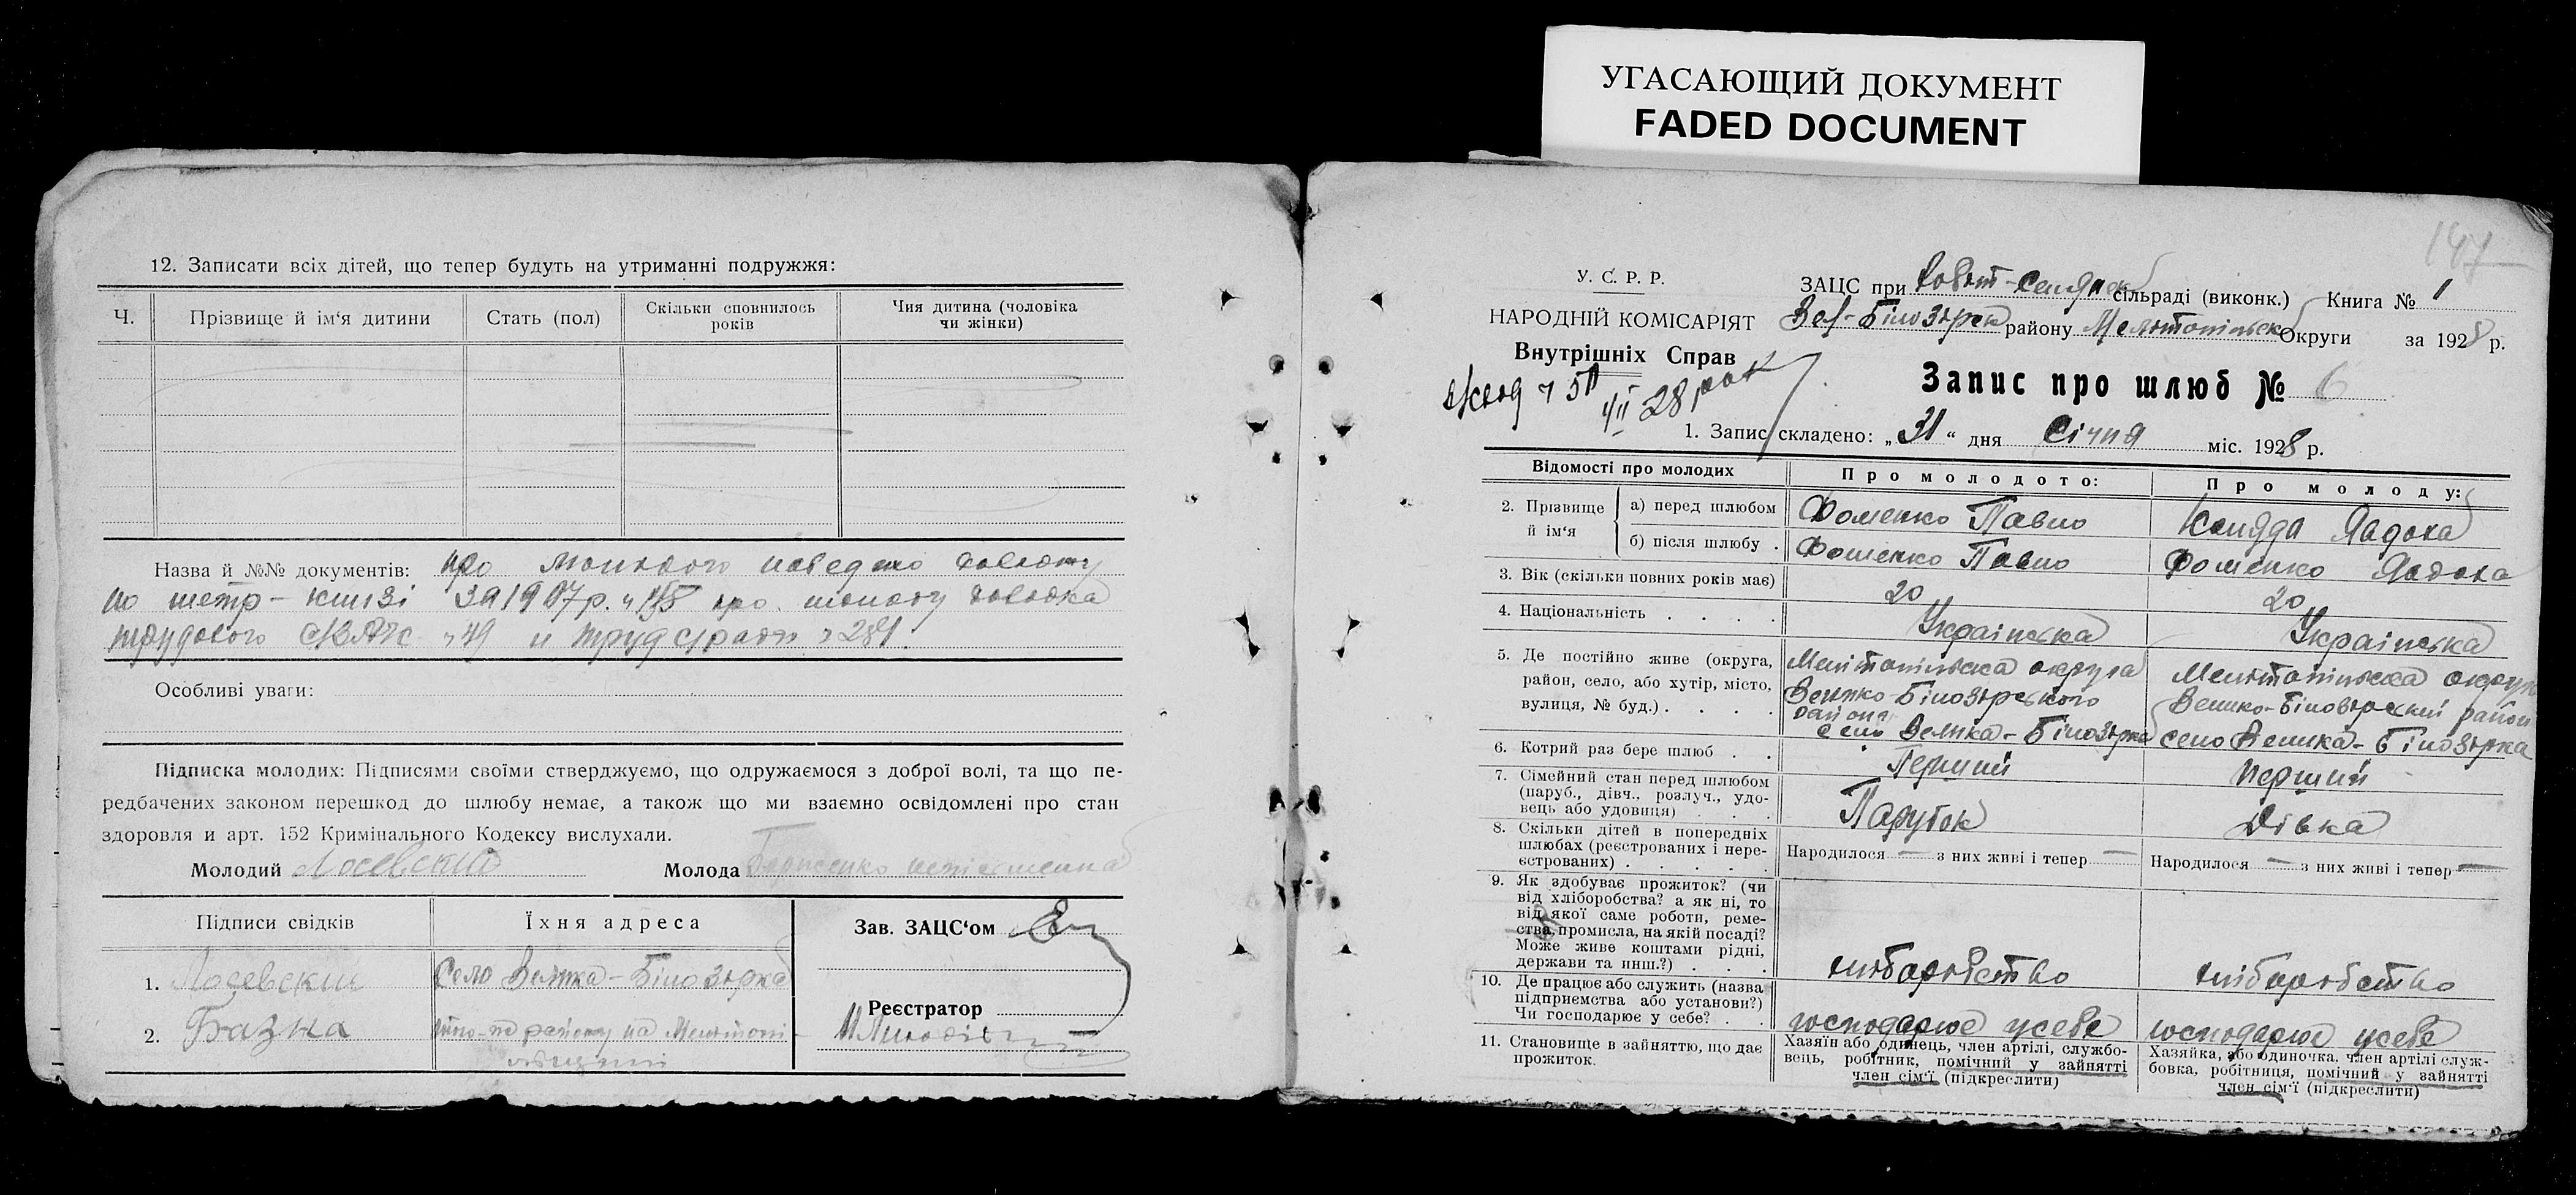 УГАСАЮЩИЙ ДОКУМЕНТ
FADED DOCUMENT
12. Записати всіх дітей, що тепер будуть на утриманні подружжя:
Ч.
Прізвище й ім‘я дитини
Стать (пол)
Скільки сповнилось
років
Чия дитина (чоловіка
чи жінки)
Назва й №№ документів: про
по метр-книзі 1907 р. про
трудового ЗАГС 49 и труд
Особливі уваги:
Підписка молодих: Підписями своїми стверджуємо, що одружаємося з доброї волі, та що пе-
редбачених законом перешкод до шлюбу немає, а також що ми взаємно освідомлені про стан
здоровля и арт. 152 Кримінального Кодексу вислухали.
Молодий Лосевский Молода
Підписи свідків
Їхня адреса
1. Лосевский Село Велика-Білозирка
2. Базна
Зав. ЗАЦС‘ом
Реєстратор
147
У. С. Р. Р.
НАРОДНІЙ КОМІСАРІЯТ
Внутрішніх Справ
28 рок
ЗАЦС при сільраді (виконк.) Книга № 1
Вел-Білозирск району Мелітопільск Округи за 1928 р.
Запис про шлюб № 6
1. Запис складено: „31“ дня Січня міс. 1928 р.
Відомості про молодих
Про молодого:
Про молоду:
2. Прізвище й ім‘я
а) перед шлюбом Фоменко Павло Явдоха
б) після шлюбу Фоменко Павло Фоменко Явдоха
3. Вік (скільки повних років має) 20 20
4. Національність Українська Українська
5. Де постійно живе (округа,
район, село, або хутір, місто,
вулиця, № буд.)
Мелітопільска округа
Велико-Білозирського
района
село Велика-Білозирка
Мелітопільска округа
Велико-Білозирский район
село Велика-Білозирка
6. Котрий раз бере шлюб Перший перший
7. Сімейний стан перед шлюбом
(паруб., дівч., розлуч., удо-
вець або удовиця)
Парубок Дівка
8. Скільки дітей в попередніх
шлюбах (реєстрованих і нере-
єстрованих)
Народилося — з них живі і тепер —
Народилося — з них живі і тепер —
9. Як здобуває прожиток? (чи
від хліборобства? а як ні, то
від якої саме роботи, реме-
ства, промисла, на якій посаді?
Може живе коштами рідні,
держави та инш.?)
хліборобство хліборобство
10. Де працює або служить (назва
підприємства або установи?)
Чи господарює у себе?
господарює усебе господарює усебе
11. Становище в зайняттю, що дає
прожиток.
Хазяїн або одинець, член артілі, службо-
вець, робітник, помічний у зайнятті
член сім‘ї (підкреслити)
Хазяйка, або одиночка, член артілі служ-
бовка, робітниця, помічний у зайнятті
член сім‘ї (підкреслити)